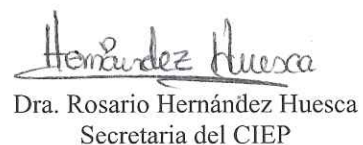 Hernández Huesca
Dra. Rosario Hernández Huesca
Secretaria del CIEP